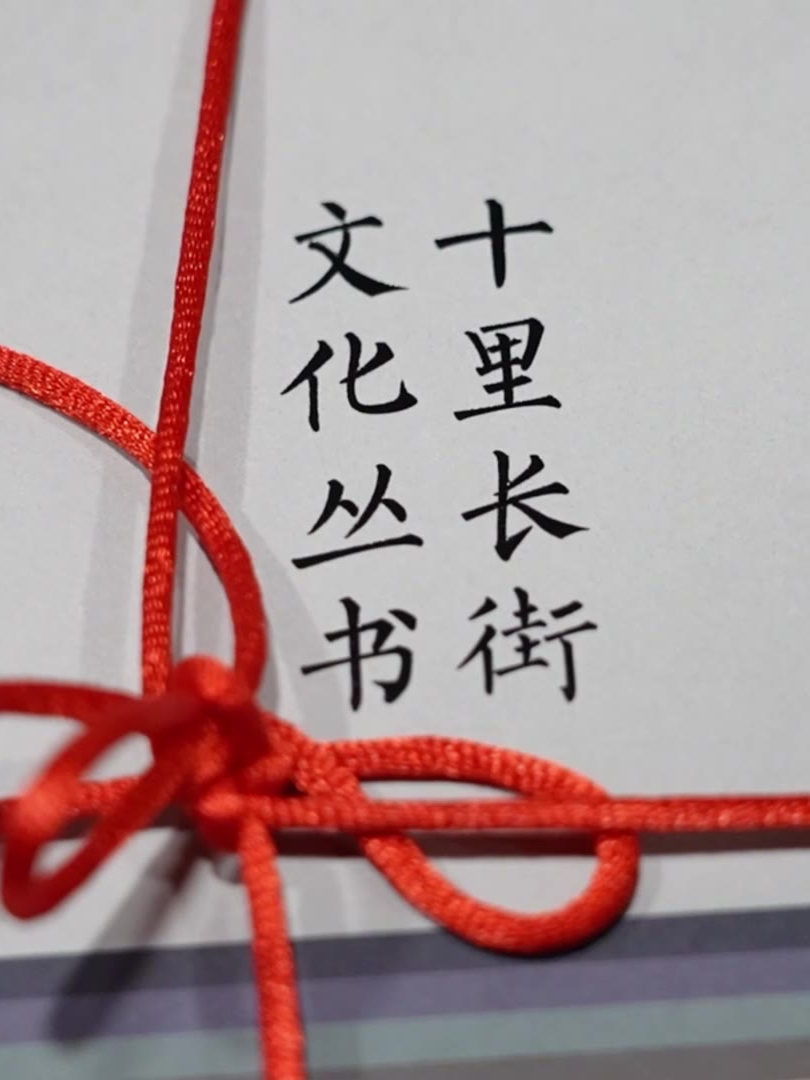 十里长街
文化丛书